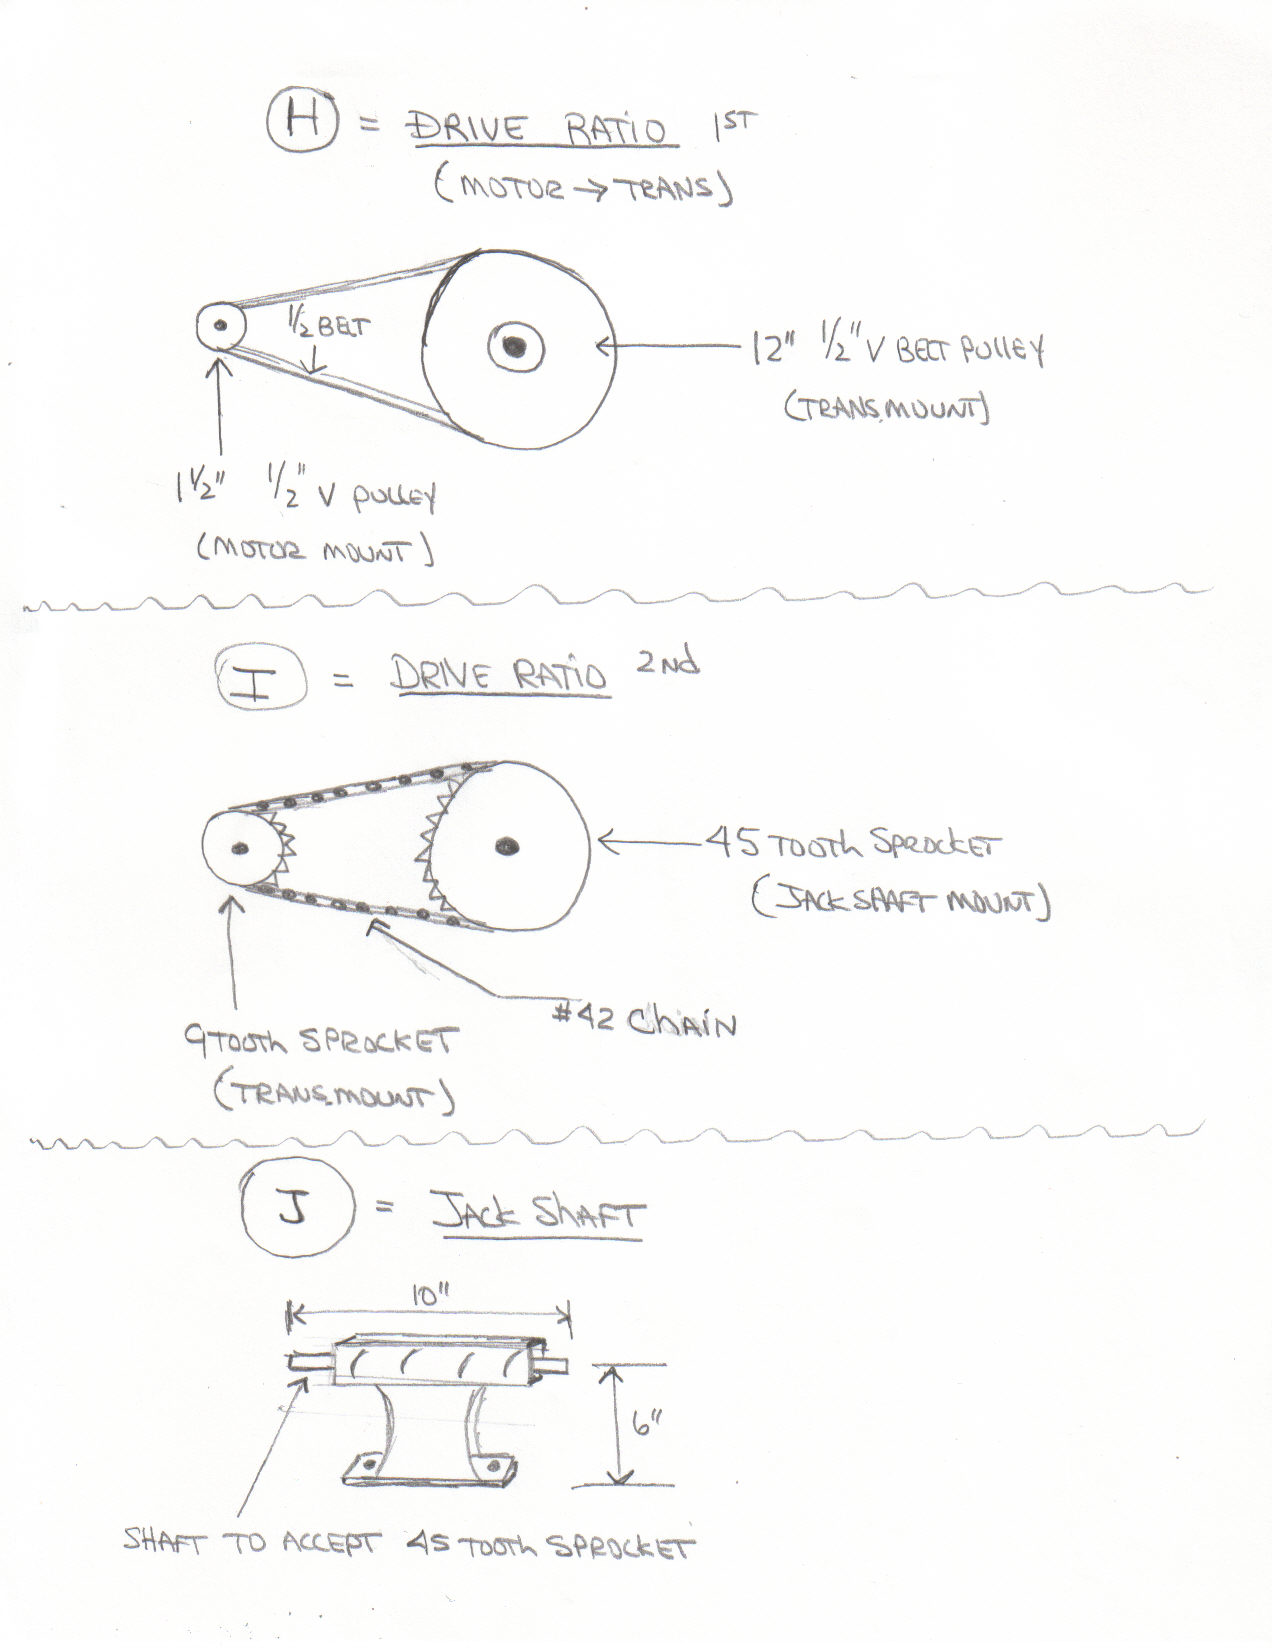 H = DRIVE RATIO 1ST
(MOTOR → TRANS)
1/2 BELT
12" 1/2" V BELT PULLEY
(TRANS. MOUNT)
1 1/2" 1/2" V PULLEY
(MOTOR MOUNT)
I = DRIVE RATIO 2Nd
45 TOOTH SPROCKET
(JACK SHAFT MOUNT)
#42 CHAIN
9 TOOTH SPROCKET
(TRANS. MOUNT)
J = JACK SHAFT
10"
6"
SHAFT TO ACCEPT 45 TOOTH SPROCKET